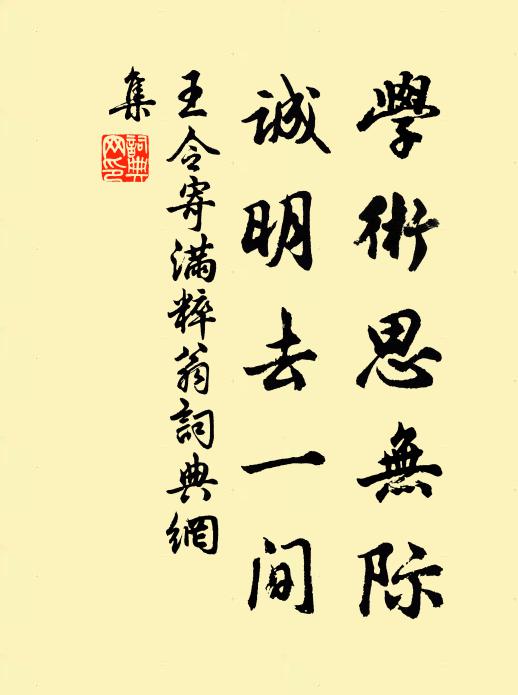 學術思無际
诚明去一间
王令寄滿粹翁詞典網
集
詞典
网印